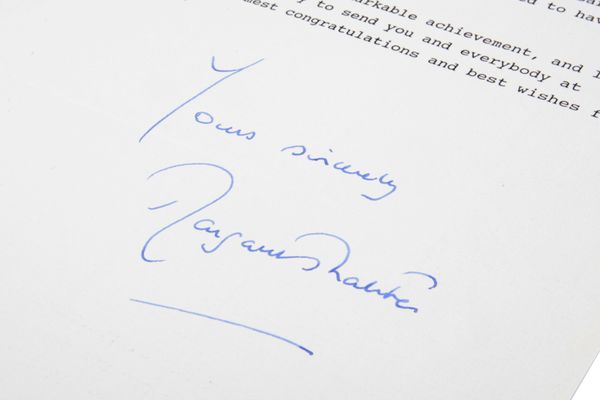 ed to hav
arkable achievement, and I
y to send you and everybody at
mest congratulations and best wishes f
Yours sincerely
Margaret Thatcher